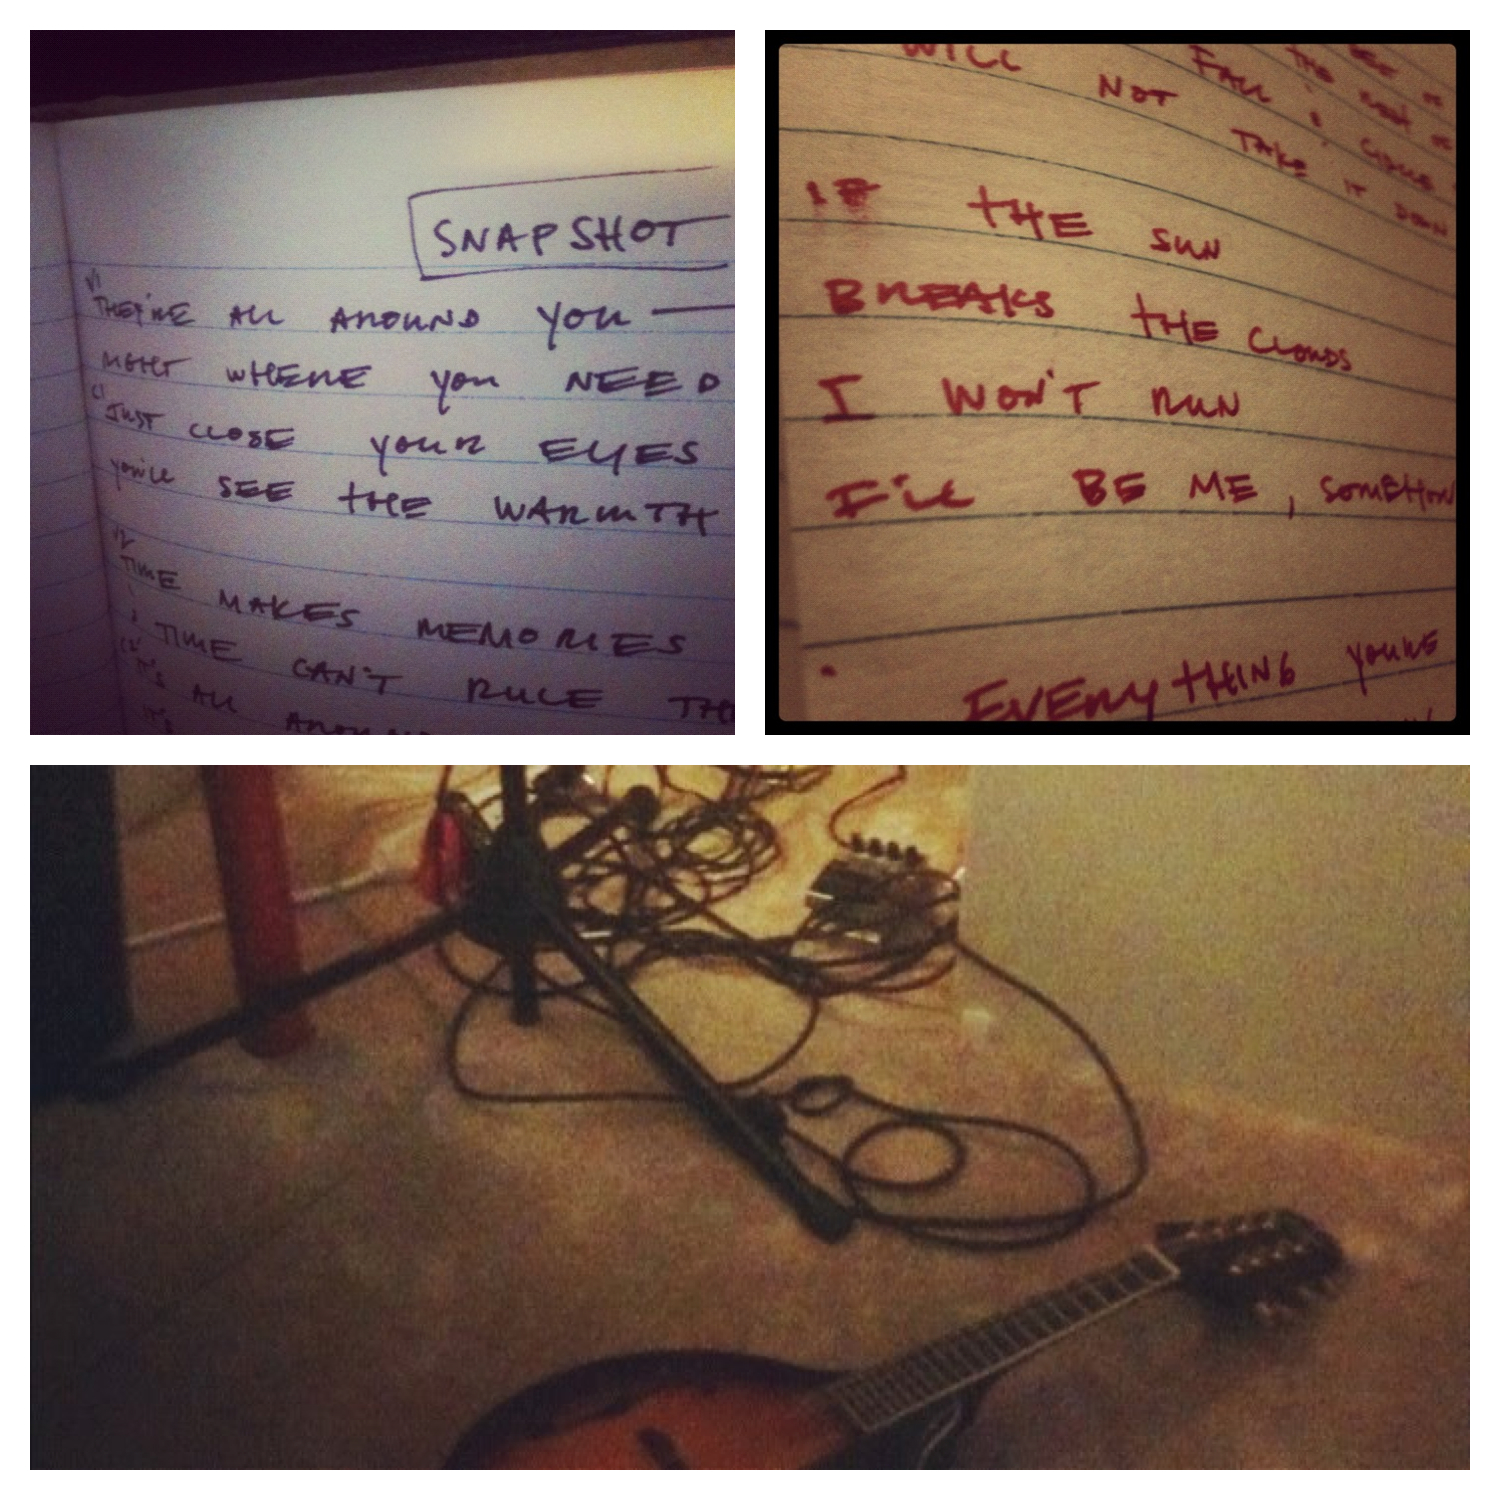 SNAPSHOT
V1
THEY'RE ALL AROUND YOU —
RIGHT WHERE YOU NEED
C1
JUST CLOSE YOUR EYES
YOU'LL SEE THE WARMTH
V2
TIME MAKES MEMORIES
TIME CAN'T RULE
C2
IT'S ALL AROUND
IT'S
WILL NOT TAKE IT DOWN
FALL
THE
IF THE SUN
BREAKS THE CLOUDS
I WON'T RUN
I'LL BE ME, SOMEHOW
EVERYTHING YOU'VE